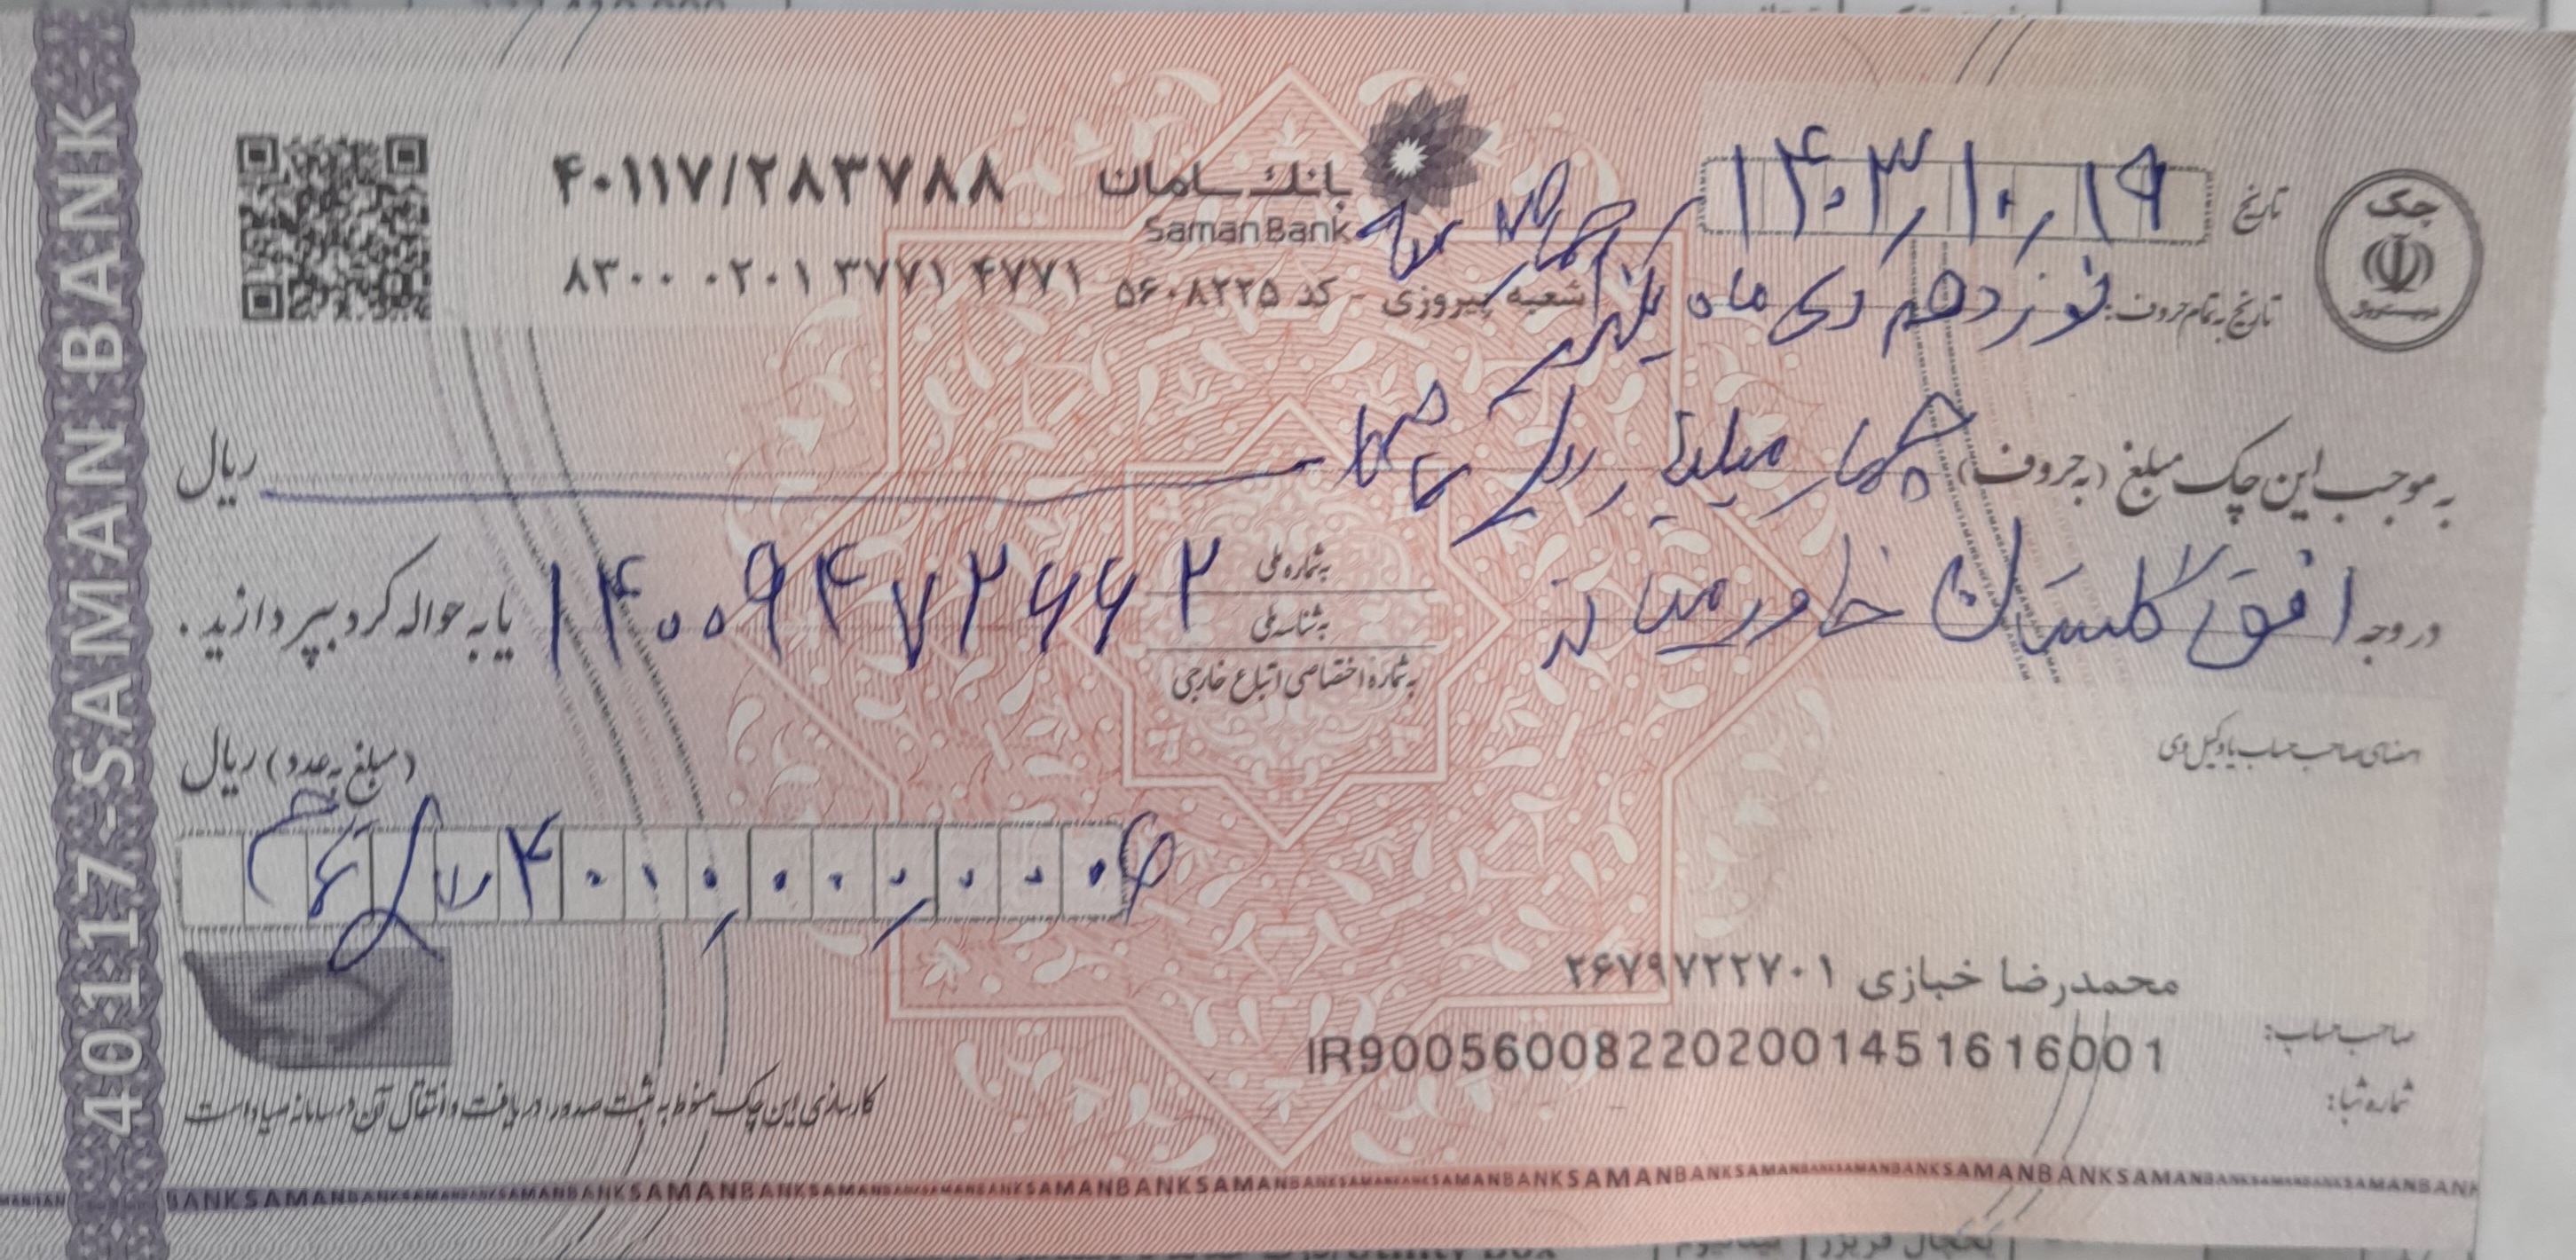 40117-SAMAN BANK
جک
تاریخ ۱۴۰۳/۱۰/۱۹
بانک سامان
Saman Bank
۴۰۱۱۷/۲۸۳۷۸۸
۸۳۰۰ ۰۲۰۱ ۳۷۷۱ ۴۷۷۱
شعبه پیروزی - کد ۵۶۰۸۲۲۵
تاریخ به تمام حروف: نوزدهم دی ماه یکهزار و چهارصد و سه
به موجب این چک مبلغ (به حروف) چهار میلیارد ریال تمام ریال
در وجه افق گلستان خاورمیانه
به شماره ملی
به شناسه ملی
به شماره اختصاصی اتباع خارجی
۱۴۰۰۹۴۷۲۶۶۲ یا به حواله کرد بپردازید.
(مبلغ به عدد) ریال
امضای صاحب حساب یا وکیل وی
محمدرضا خبازی ۲۶۷۹۷۲۲۷۰۱
صاحب حساب:
IR900560082202001451616001
شماره شبا:
کارسازی این چک منوط به ثبت صدور، دریافت و انتقال آن در سامانه صیاد است
BANKSAMANBANKSAMANBANKSAMANBANKSAMANBANK